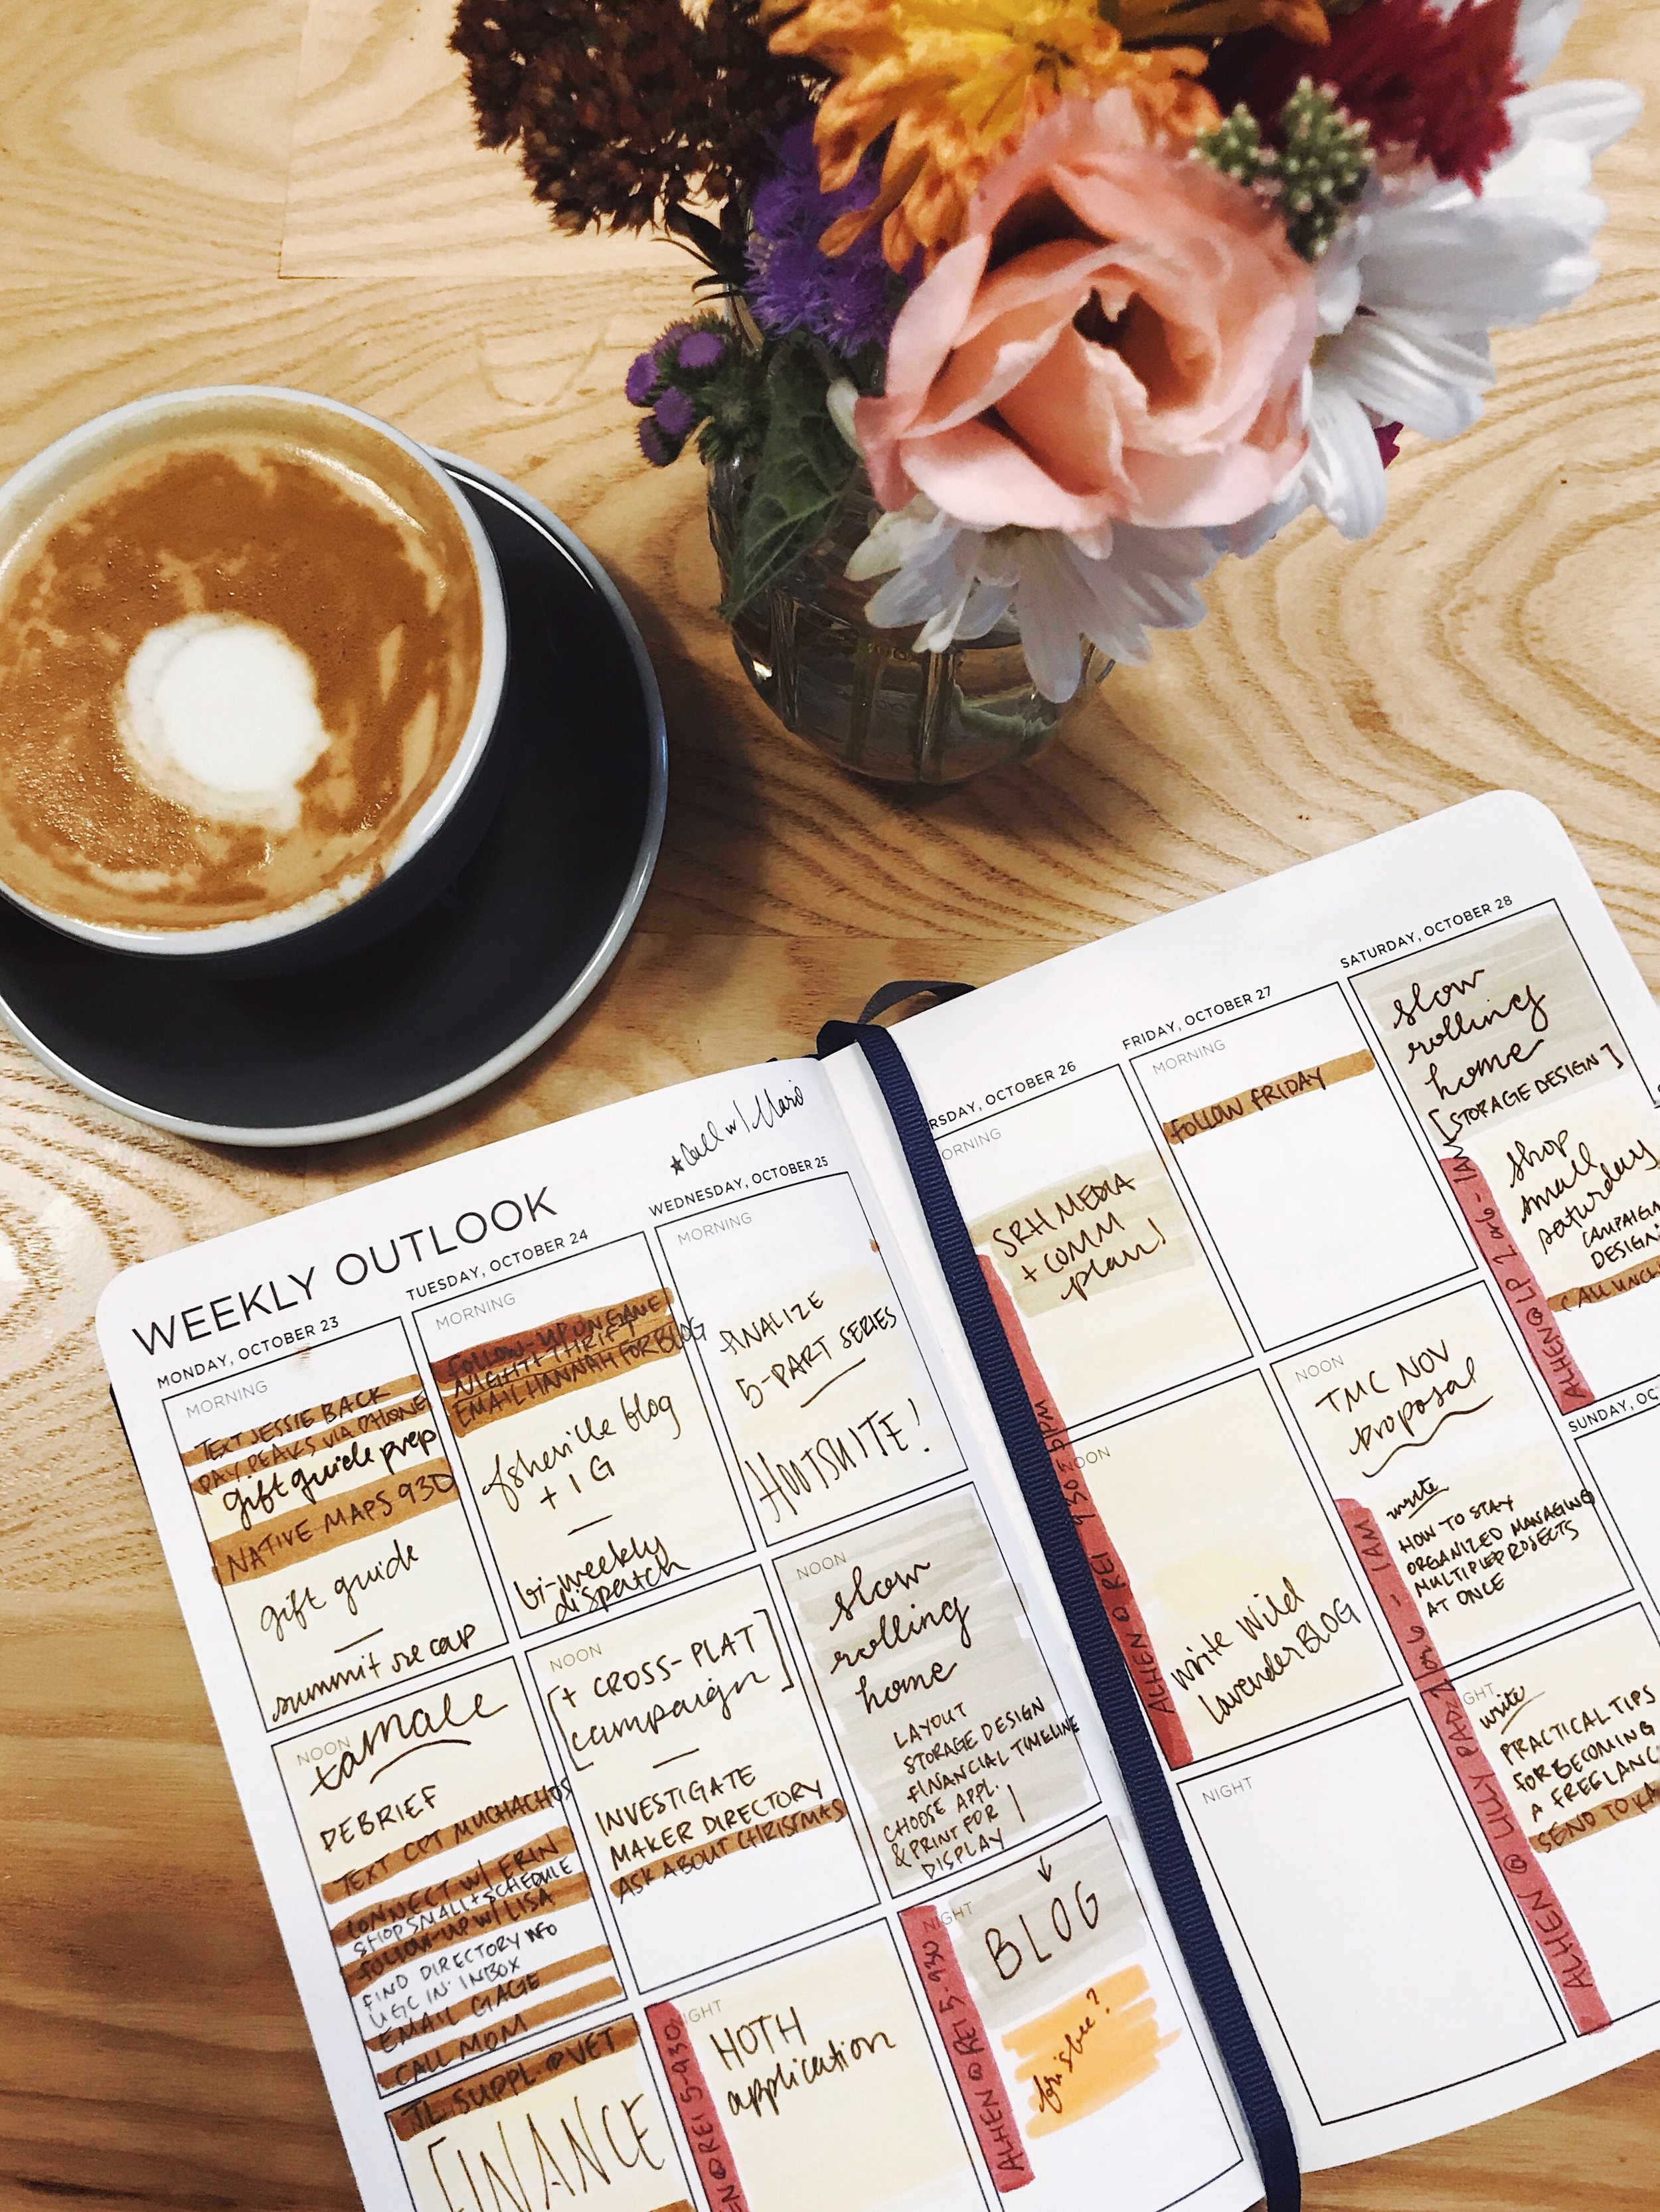 ★ call w/
WEEKLY OUTLOOK
MONDAY, OCTOBER 23
MORNING
TEXT JESSIE BACK
PAY PEAKS VIA PHONE
gift guide prep
NATIVE MAPS 930
gift guide
summit recap
NOON
tamale
DEBRIEF
TEXT CPT MUCHACHOS
CONNECT w/ ERIN
SHOP SMALL + SCHEDULE
FOLLOW-UP w/ LISA
FIND DIRECTORY INFO
UGC IN INBOX
EMAIL GAGE
CALL MOM
JL SUPPL @ VET
FINANCE
TUESDAY, OCTOBER 24
MORNING
FOLLOW-UP ON
THRIFT
EMAIL HANNAH FOR BLOG
asheville blog
+ IG
bi-weekly
dispatch
NOON
[+ CROSS-PLAT
campaign]
INVESTIGATE
MAKER DIRECTORY
ASK ABOUT CHRISTMAS
NIGHT
HOTH
application
EN @ REI 5-930
WEDNESDAY, OCTOBER 25
MORNING
FINALIZE
5-PART SERIES
HOOTSUITE!
NOON
slow
rolling
home
LAYOUT
STORAGE DESIGN
FINANCIAL TIMELINE
CHOOSE APPL.
& PRINT FOR
DISPLAY
NIGHT
BLOG
ALHEN @ REI 5-930
frisbee?
RSDAY, OCTOBER 26
ORNING
SRH MEDIA
+ COMM
plan!
NOON
ALHEN @ REI
write Wild
Lavender BLOG
NIGHT
FRIDAY, OCTOBER 27
MORNING
FOLLOW FRIDAY
NOON
TMC NOV
proposal
write
HOW TO STAY
ORGANIZED MANAGING
MULTIPLE PROJECTS
AT ONCE
GHT
write
PRACTICAL TIPS
FOR BECOMING
A FREELANC
SEND TO KA
ALHEN @ LILLY PAD
SATURDAY, OCTOBER 28
slow
rolling
home
[STORAGE DESIGN]
shop
small
saturday
CAMPAIGN
DESIGN
CALL UNCL
ALHEN @ LP
SUNDAY, OC